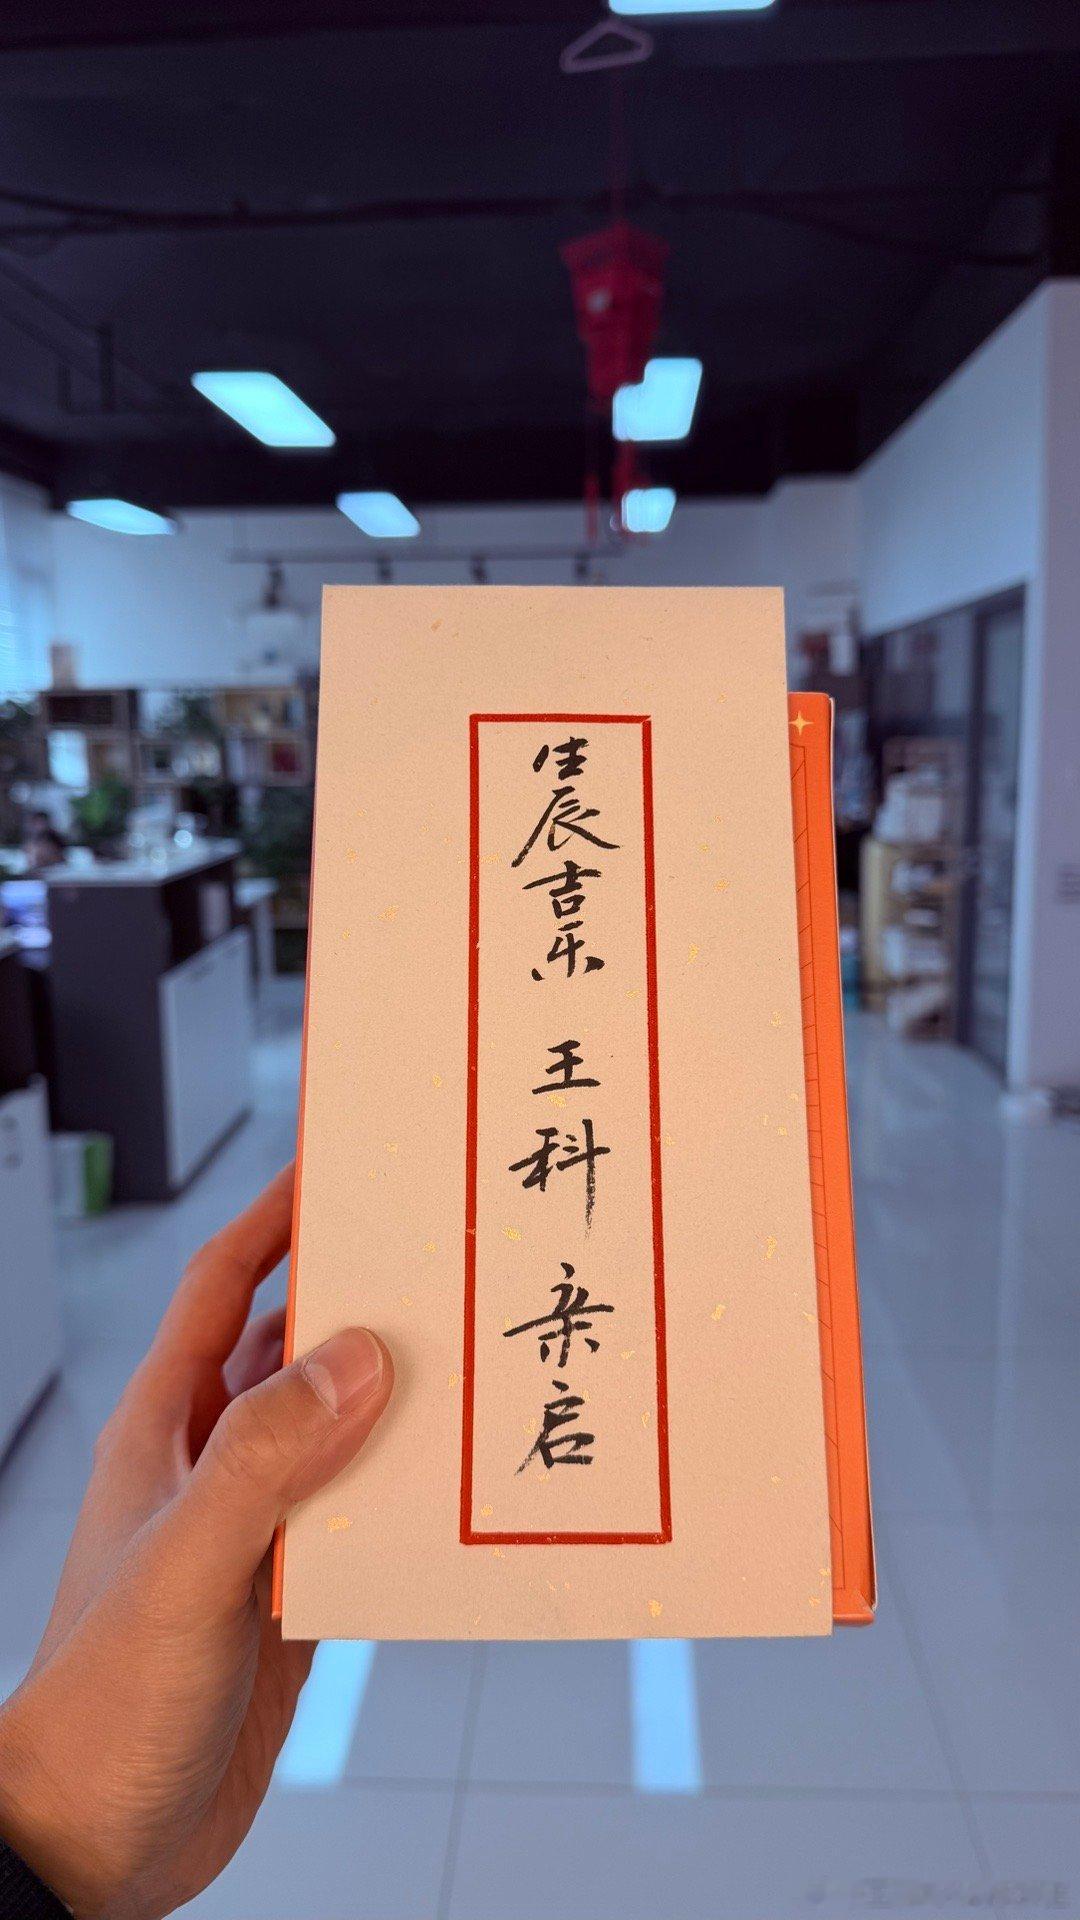 佳辰吉乐 王科 亲启